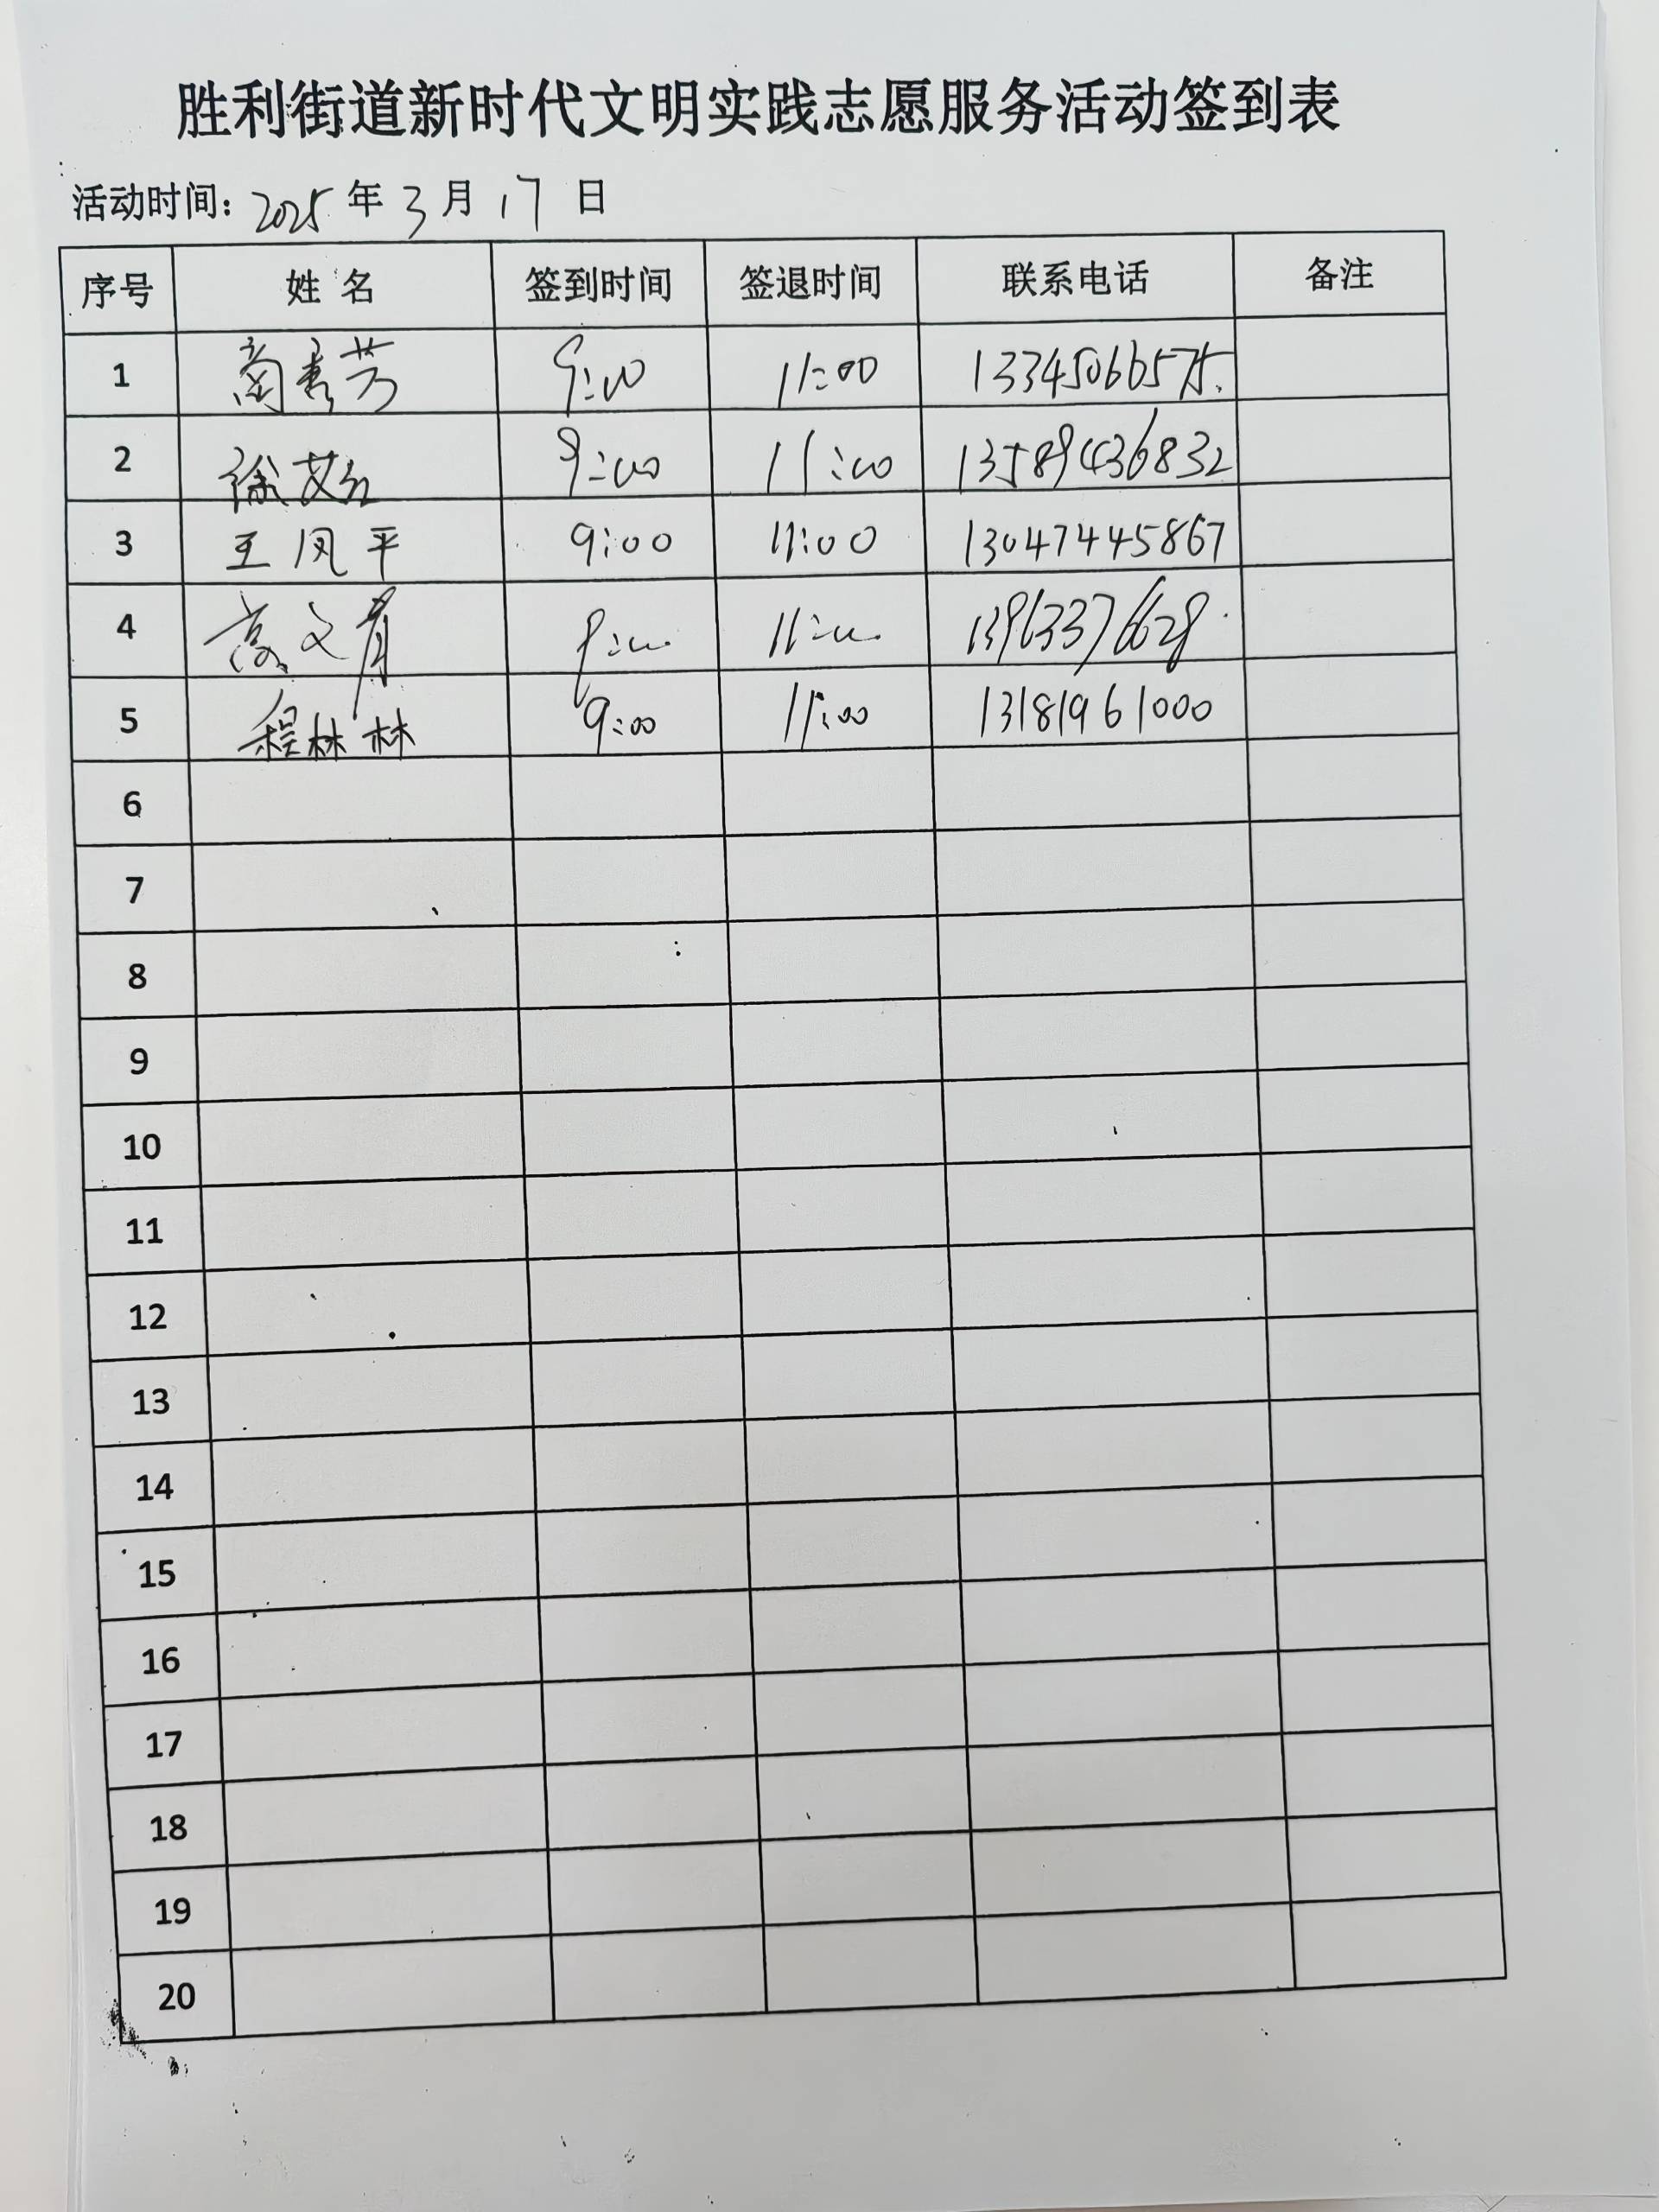 胜利街道新时代文明实践志愿服务活动签到表
活动时间: 2025 年 3 月 17 日
序号 姓 名 签到时间 签退时间 联系电话 备注
1 商秀芳 9:00 11:00 13345066575
2 徐艾红 9:00 11:00 13589436832
3 王凤平 9:00 11:00 13047445867
4 高文 9:00 11:00 13963376628
5 程林林 9:00 11:00 13181961000
6
7
8
9
10
11
12
13
14
15
16
17
18
19
20